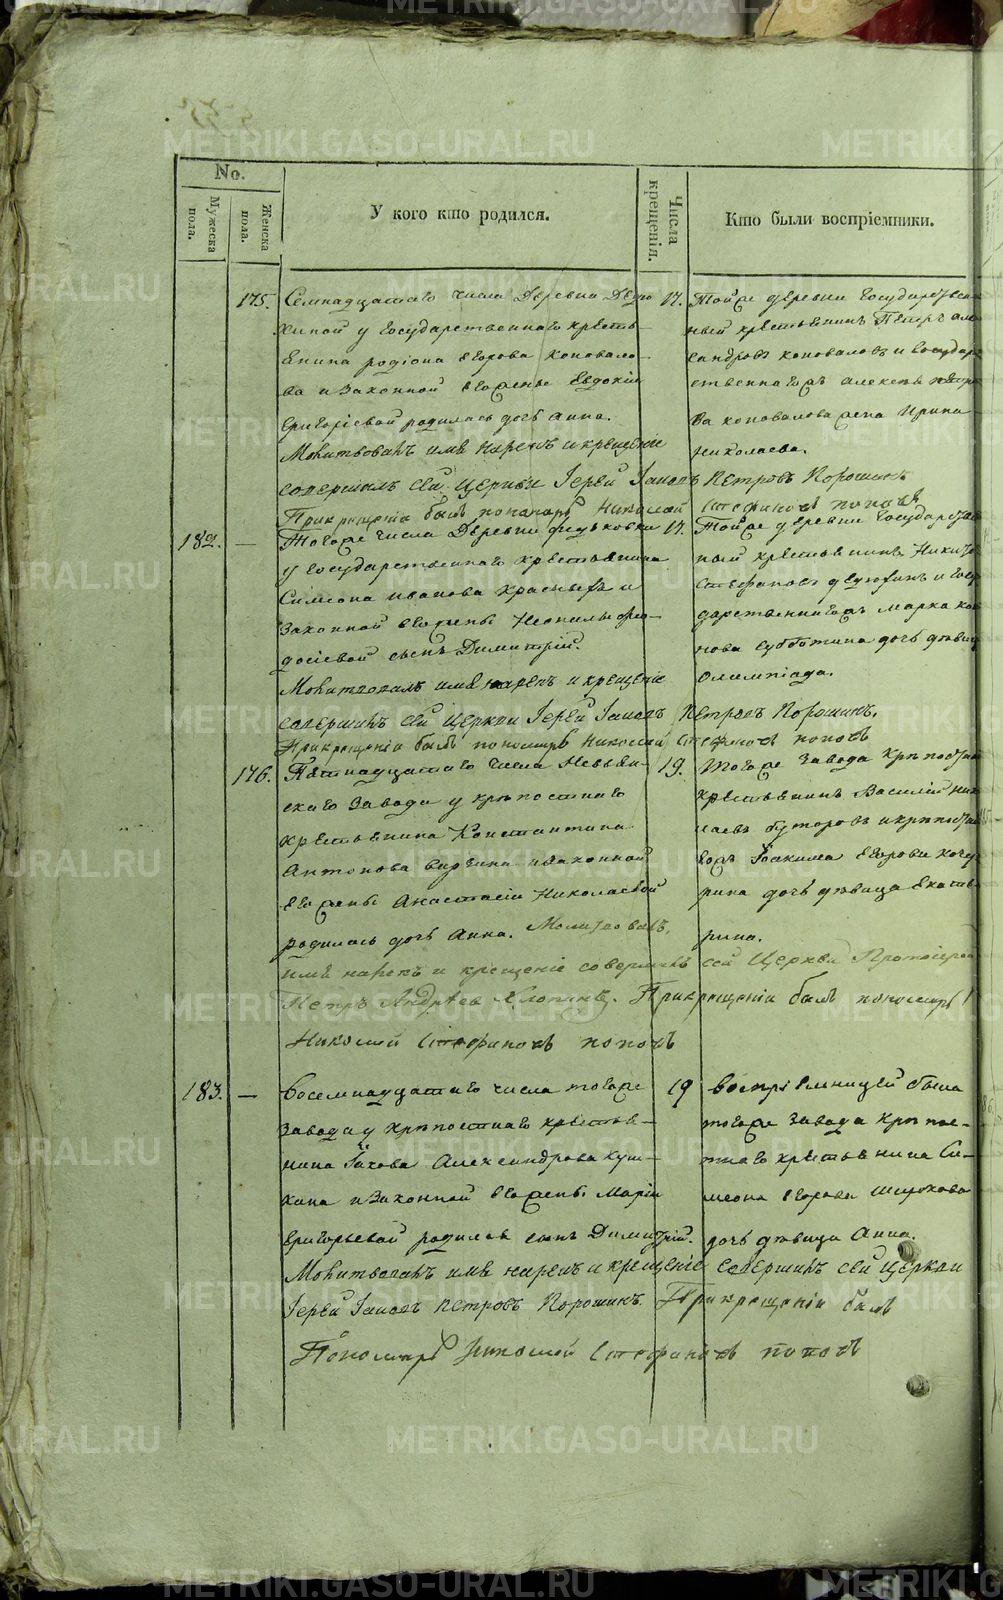 No.
Мужеска пола.
Женска пола.
У кого кто родился.
Числа крещенія.
Кто были воспріемники.
175. Семнадцатаго числа Деревни
у Государственнаго кресть-
янина родіона Егорова Коновало-
ва и Законной его жены Евдокіи
Григоріевой родилась дочь Анна.
Молитвовалъ имя нарекъ и крещеніе
совершилъ сей Церкви Іерей Іаковъ Петровъ Порошинъ
При крещеніи былъ пономарь Николай Стефановъ поповъ
17. Тойже деревни Государствен-
ный крестьянинъ Петръ Але-
ксандровъ коновалов и Государ-
ственнагожъ алексея петро-
ва коновалова жена Ирина
николаева.
182. — Тогоже числа Деревни федьковки
у Государственнаго крестьянина
Симеона иванова Красныхъ и
Законной его жены
досіевой сынъ Димитрій.
Молитвовалъ имя нарекъ и крещеніе
совершилъ сей Церкви Іерей Іаковъ Петровъ Порошинъ.
При крещеніи былъ пономарь Николай Стефановъ поповъ
17. Тойже деревни Государствен-
ный крестьянинъ Никита
Стефановъ и Госу-
дарственнагожъ марка
нова субботина дочь девица
олимпіада.
176. Пятнадцатаго числа Невьян-
скаго Завода у крепостнаго
крестьянина Константина
Антонова и законной
его жены Анастасіи Николаевой
родилась дочь Анна. Молитвовалъ,
имя нарекъ и крещеніе совершилъ сей Церкви Протоіерей
Петръ Андреевъ При крещеніи былъ пономарь
Николай Стефановъ поповъ
19. Тогоже завода крепостный
крестьянинъ Василій Ник
лаевъ буторовъ и крепостна
гожъ Іоакима Егорова
рина дочь девица Екате-
рина.
183. — Восемнадцатаго числа тогоже
завода у крепостнаго крестья-
нина Іакова Александрова куш-
кина и Законной его жены Маріи
Григорьевой родился сынъ Димитрій.
Молитвовалъ имя нарекъ и крещеніе совершилъ сей Церкви
Іерей Іаковъ Петровъ Порошинъ. При крещеніи былъ
Пономарь Николай Стефановъ поповъ
19 Воспріемницей была
тогоже завода крепос-
тнаго крестьянина Си-
меона Егорова широкова
дочь девица Анна.
METRIKI.GASO-URAL.RU